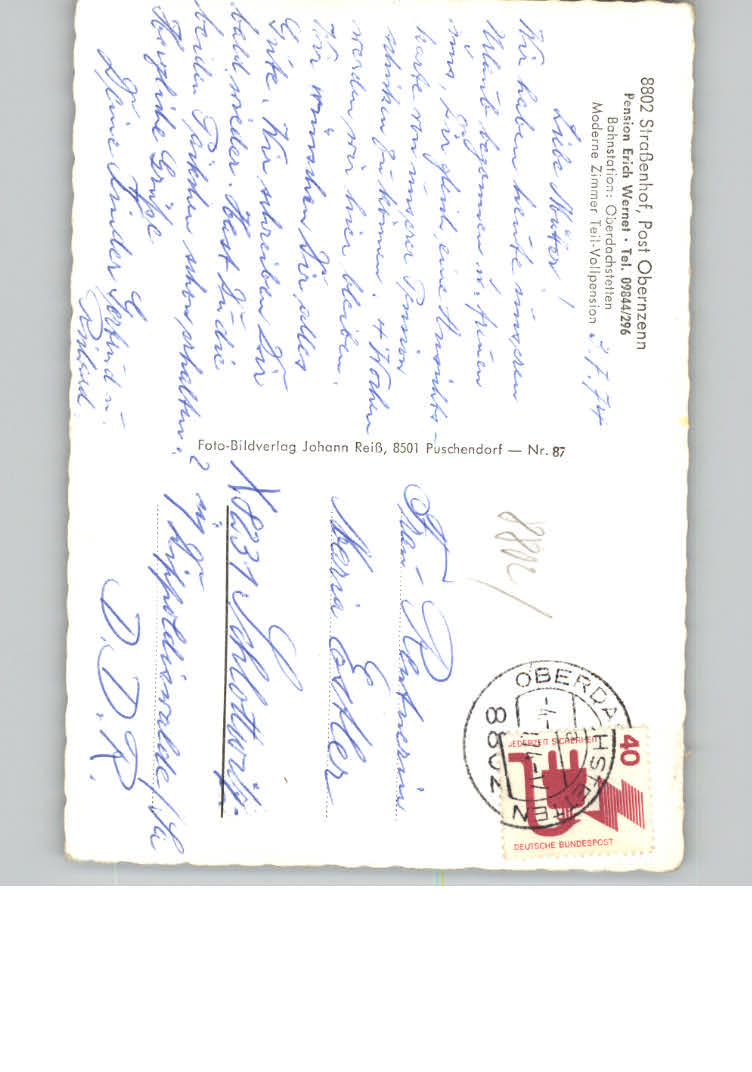 8802 Straßenhof, Post Obernzenn
Pension Erich Wernet · Tel. 09844/296
Bahnstation: Oberdachstetten
Moderne Zimmer Teil-Vollpension
3.7.74
Liebe Mutter!
Wir haben heute unseren
Urlaub begonnen u. freuen
uns, Dir gleich eine Ansichts-
karte von unserer Pension
schicken zu können. 4 Wochen
werden wir hier bleiben.
Wir wünschen Dir alles
Gute. Wir schreiben Dir
bald wieder. Hast Du die
beiden Päckchen schon erhalten?
Herzliche Grüße
Deine Kinder Gertrud u.
Foto-Bildverlag Johann Reiß, 8501 Puschendorf — Nr. 87
8802/
Frau Rentnerin
Maria Estler
X8231 Schlottwitz
üb. Dippoldiswalde/Sa
D.D.R.
OBERDACHSTETTEN
8802
-4.-7.74
JEDERZEIT SICHERHEIT
40
DEUTSCHE BUNDESPOST